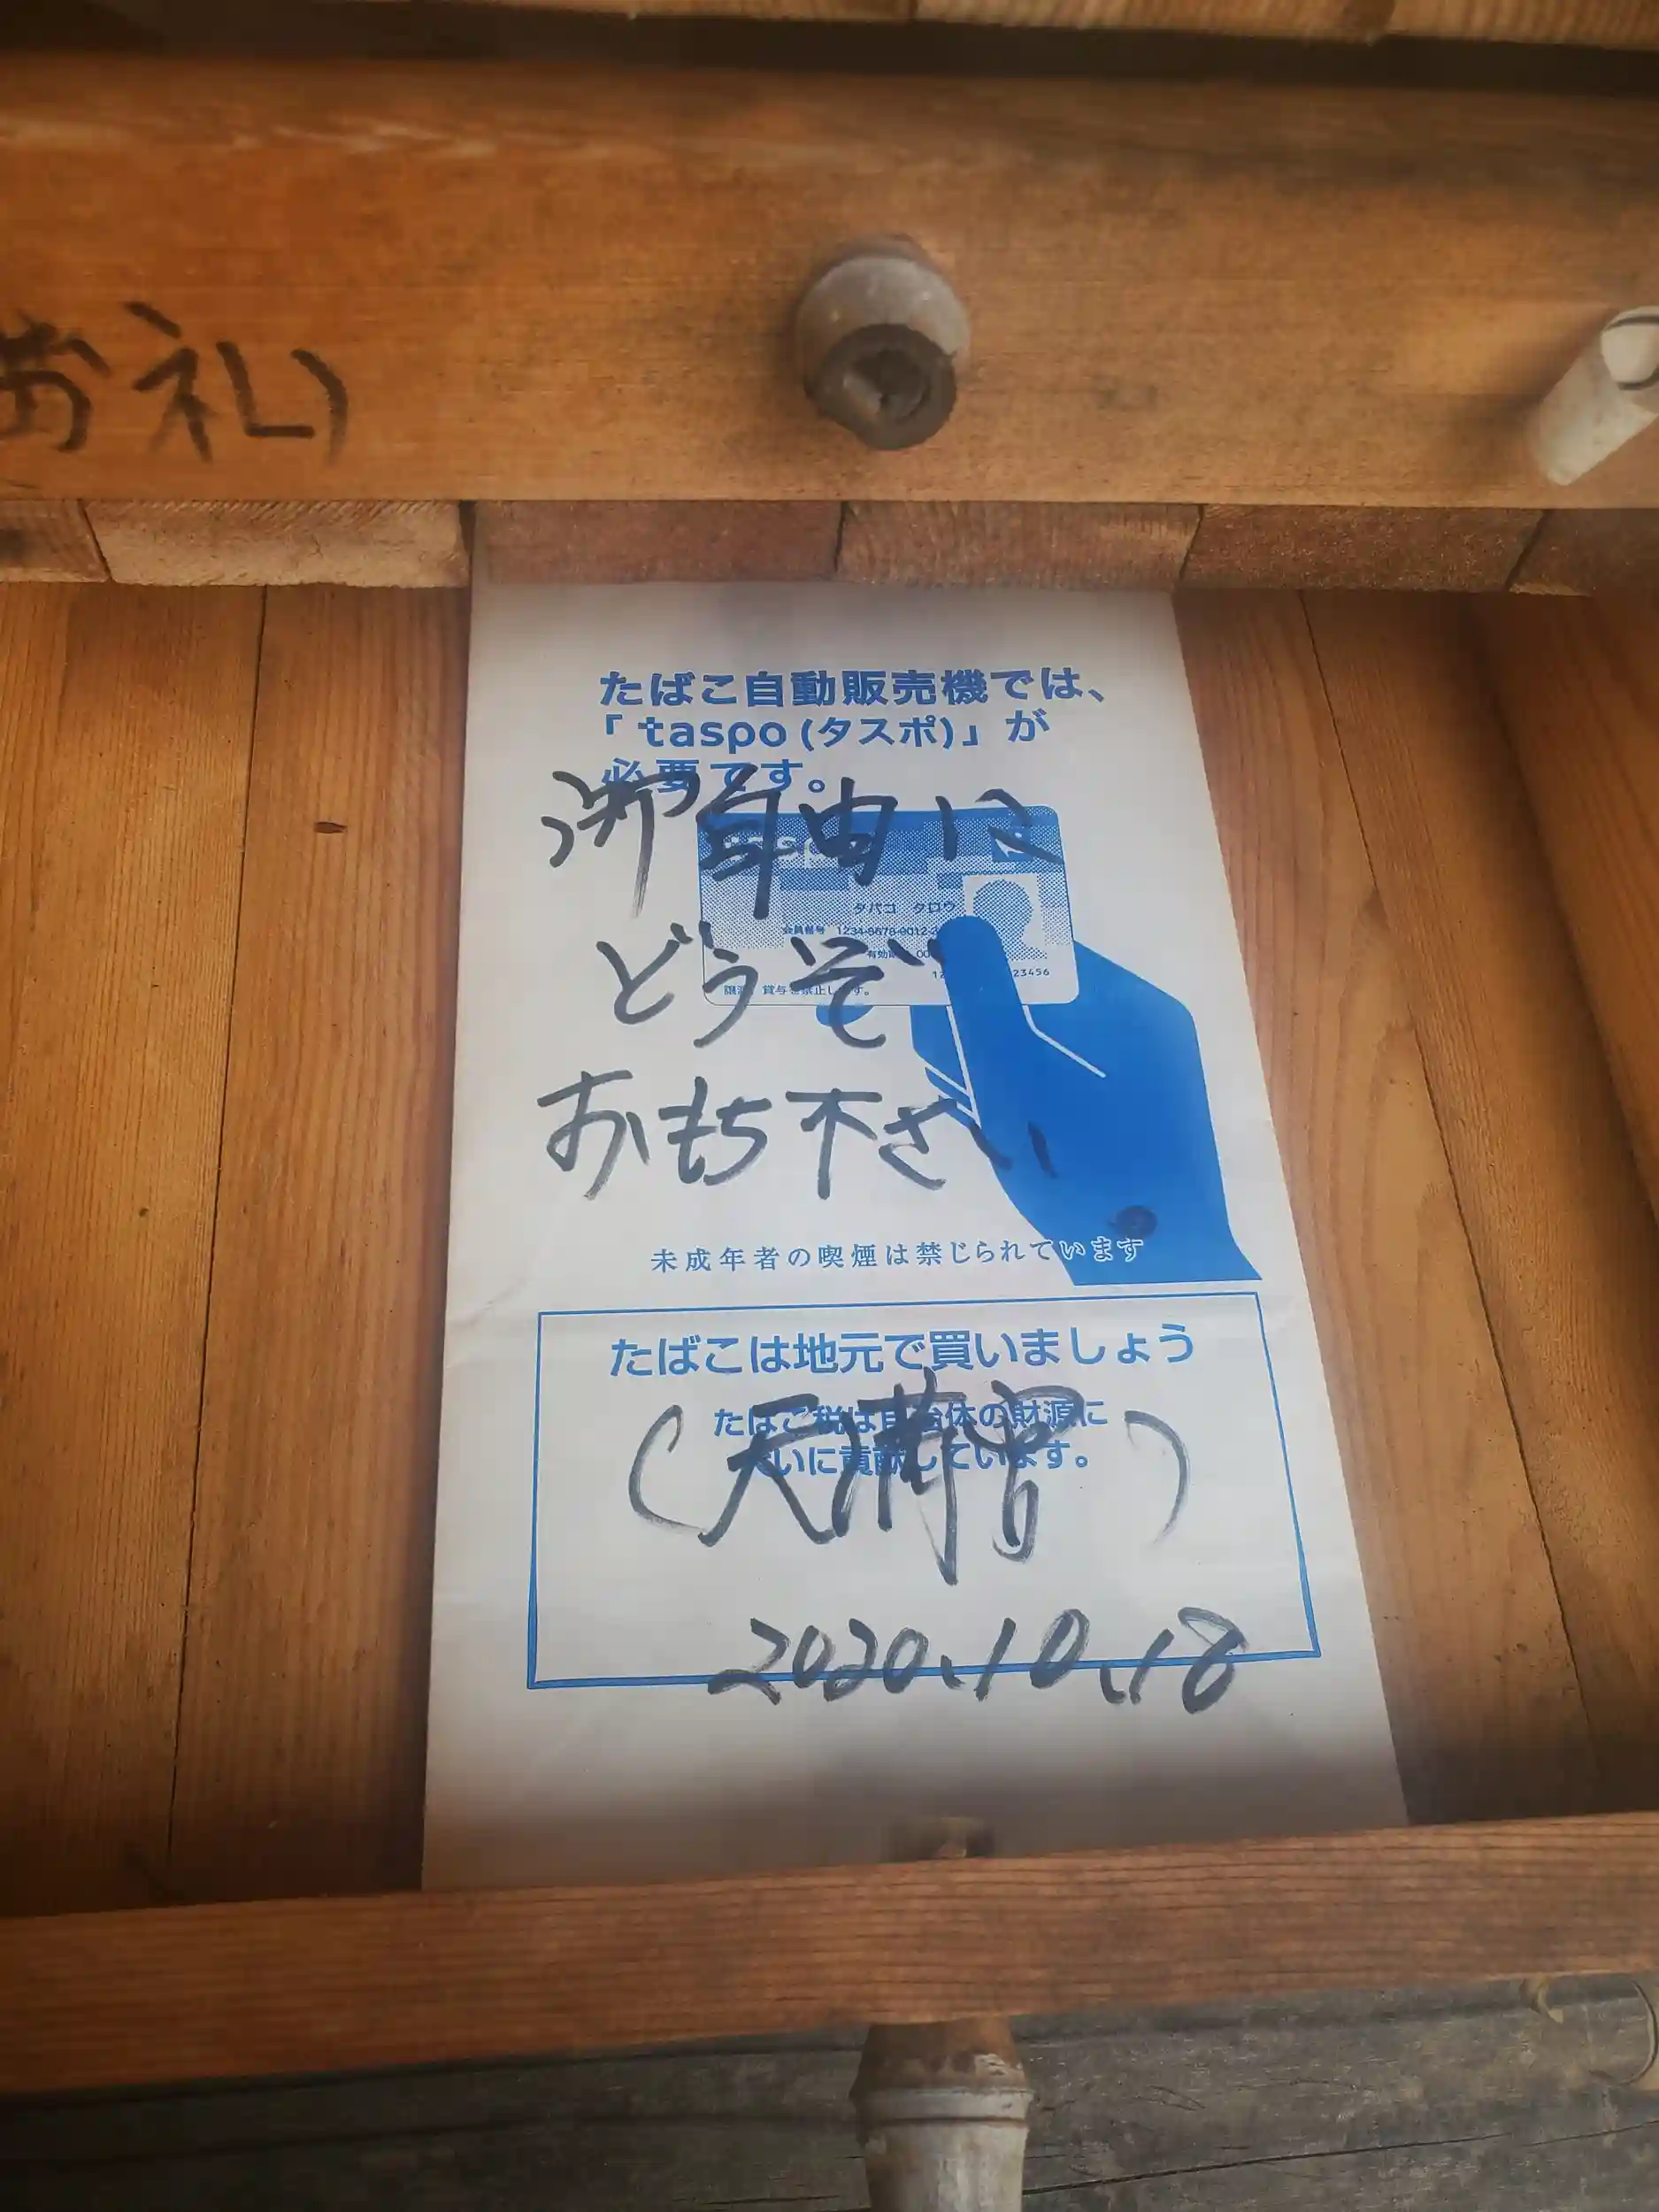 お礼)
たばこ自動販売機では、
「taspo(タスポ)」が
必要です。
御自由に
タバコ タロウ
会員番号 1234-5678-9012-
どうぞ
おもち下さい
未成年者の喫煙は禁じられています
たばこは地元で買いましょう
たばこ税は自治体の財源に
大いに貢献しています。
(天満宮)
2020.10.18